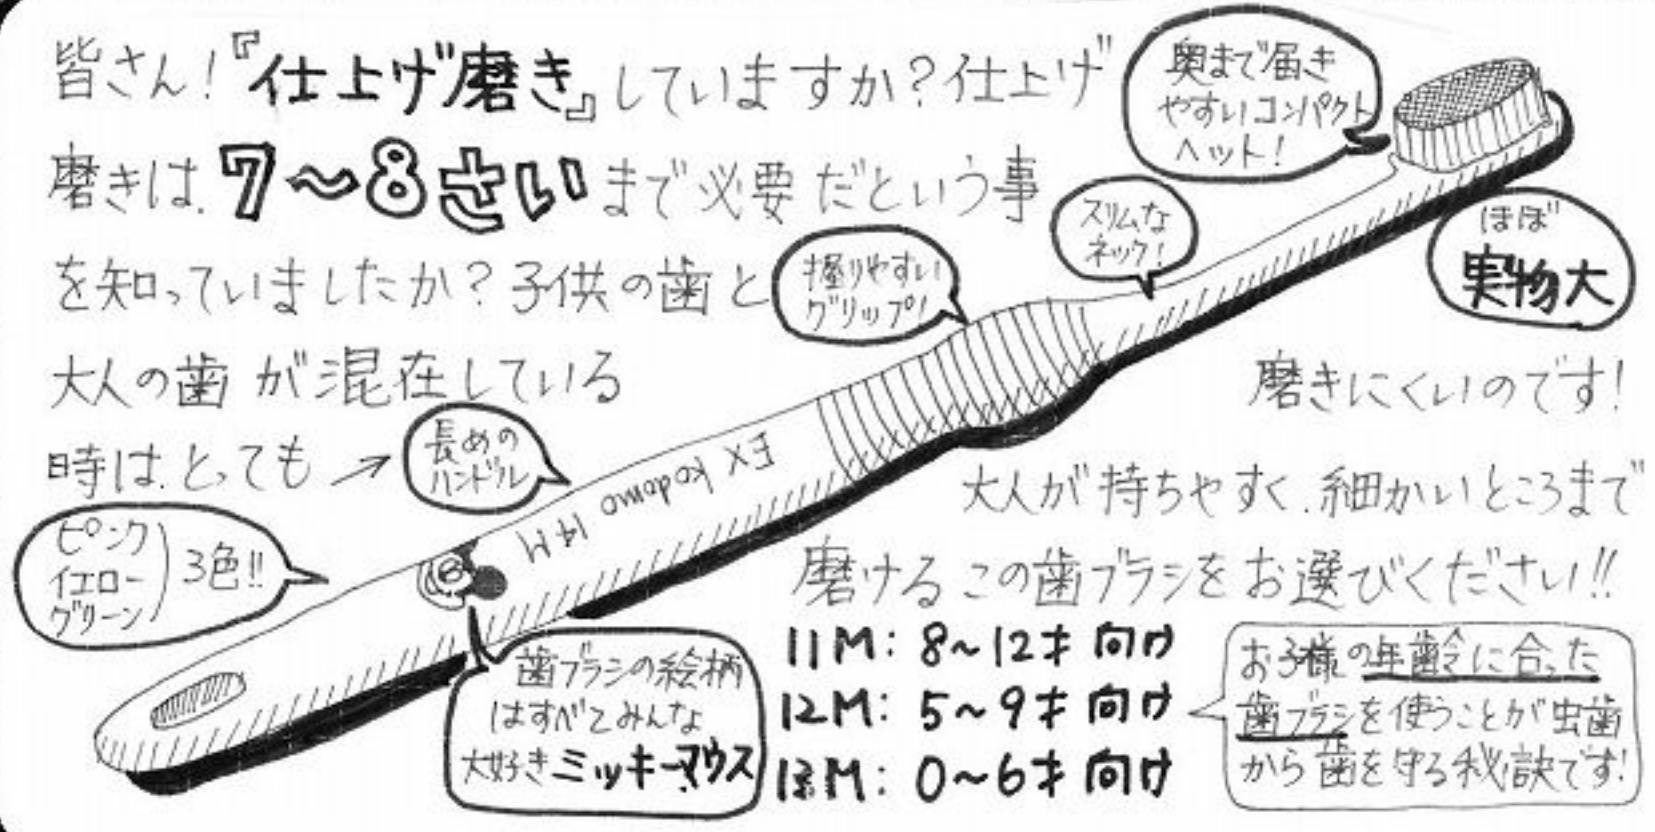 皆さん!『仕上げ磨き』していますか?仕上げ
磨きは、7～8さいまで必要だという事
を知っていましたか?子供の歯と
大人の歯が混在している
時は、とても→
磨きにくいのです!
大人が持ちやすく、細かいところまで
磨けるこの歯ブラシをお選びください!!
奥まで届き
やすいコンパクト
ヘット!
スリムな
ネック!
握りやすい
グリップ!
ほぼ
実物大
長めの
ハンドル
EX kodomo 14M
ピンク
イエロー
グリーン
3色!!
歯ブラシの絵柄
はすべてみんな
大好きミッキーマウス
11M: 8～12才向け
12M: 5～9才向け
13M: 0～6才向け
お子様の年齢に合った
歯ブラシを使うことが虫歯
から歯を守る秘訣です!